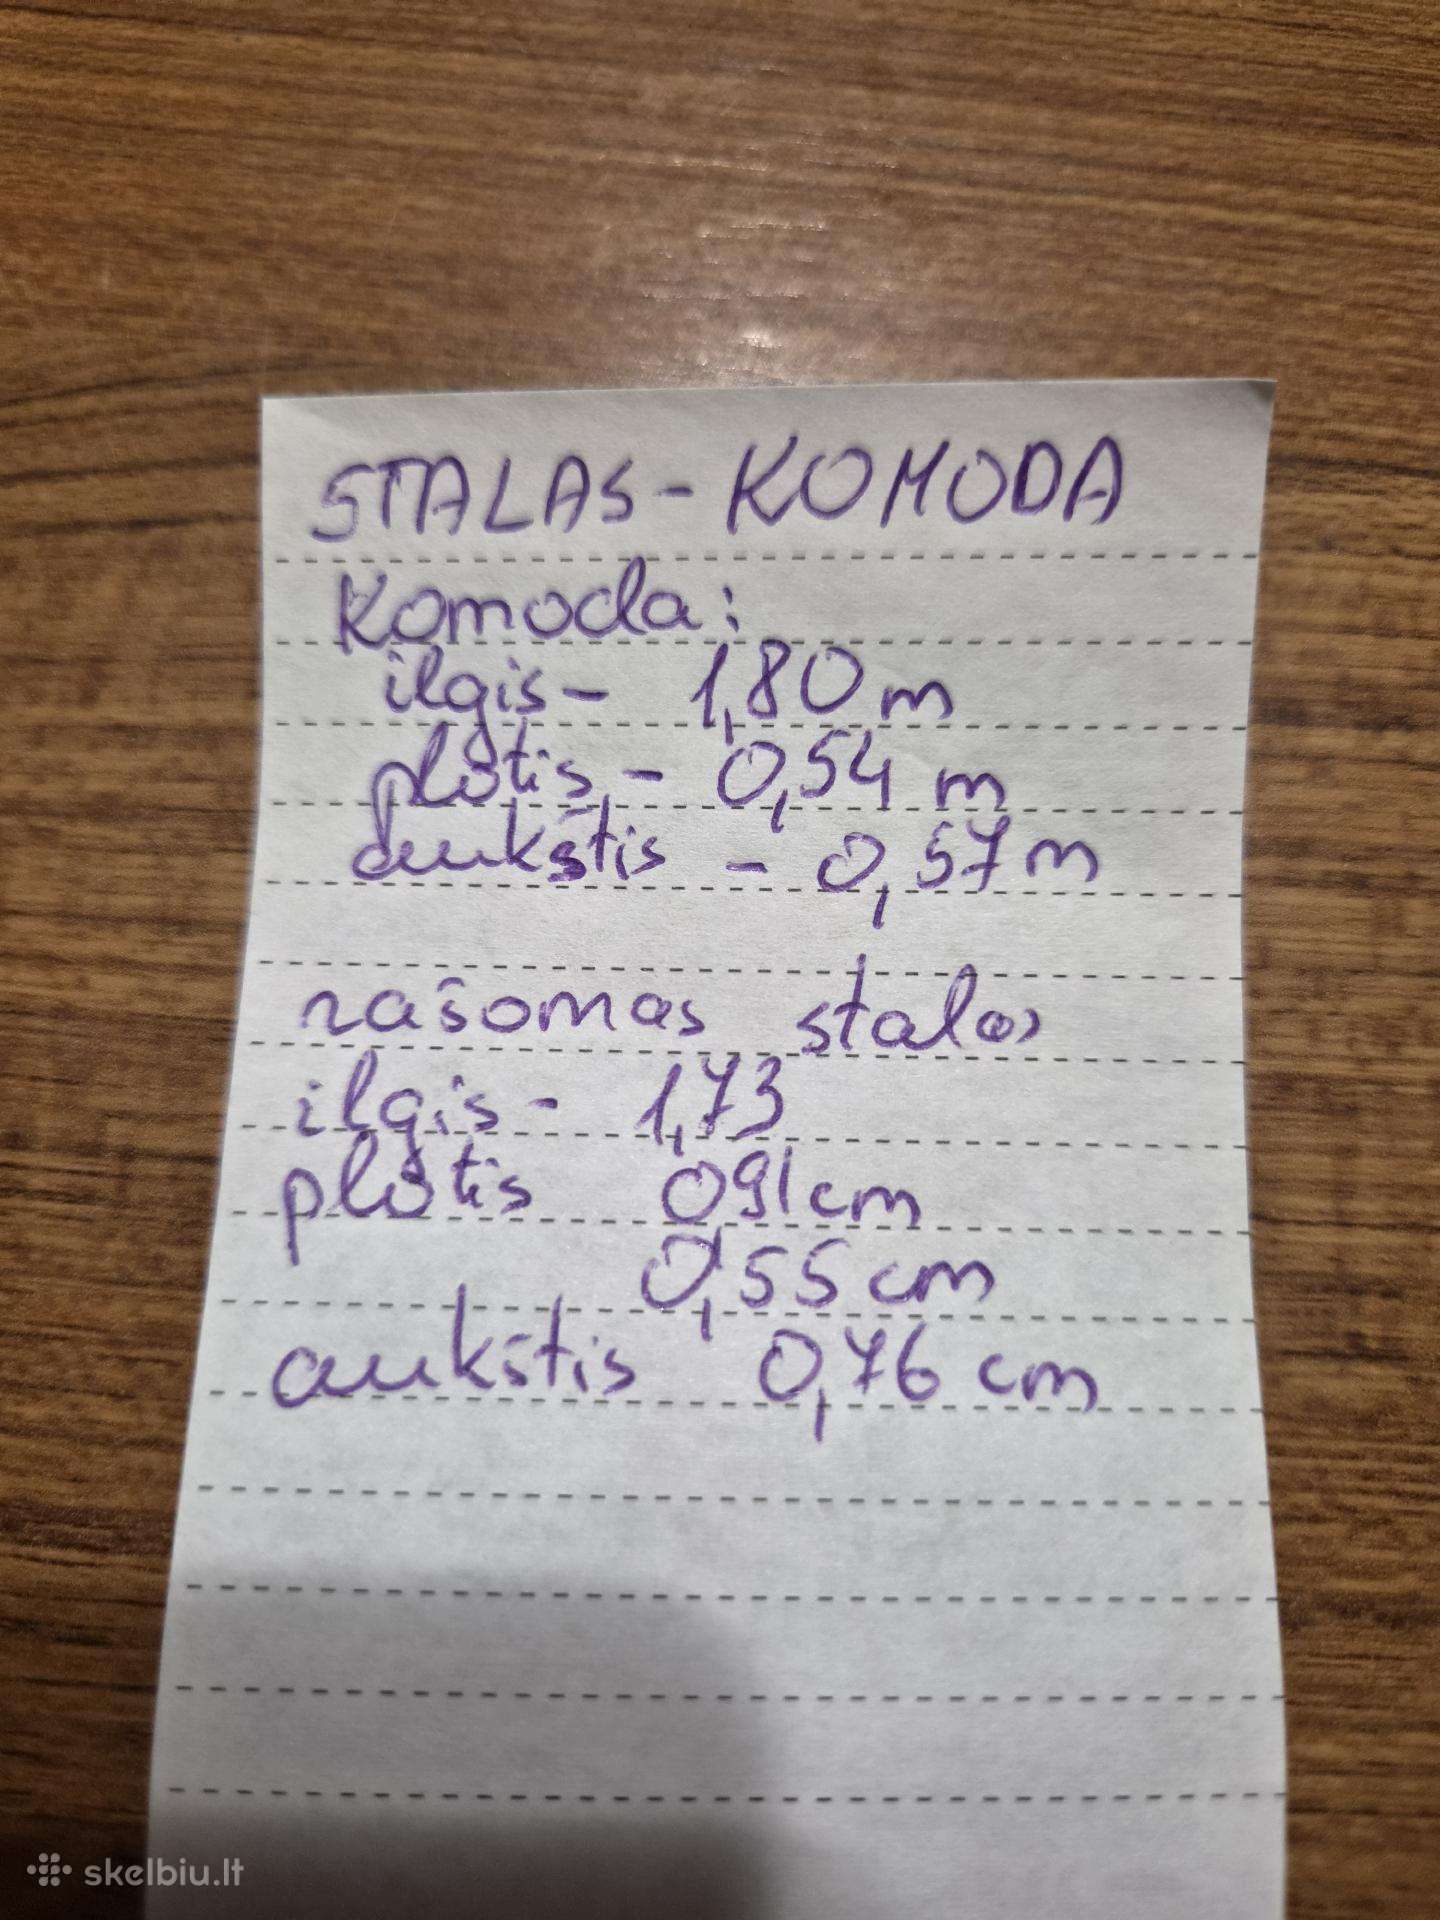 STALAS - KOMODA
Komoda:
ilgis - 1,80 m
plotis - 0,54 m
aukštis - 0,57 m
rašomas stalas
ilgis - 1,73
plotis 091 cm
0,55 cm
aukštis 0,76 cm
skelbiu.lt